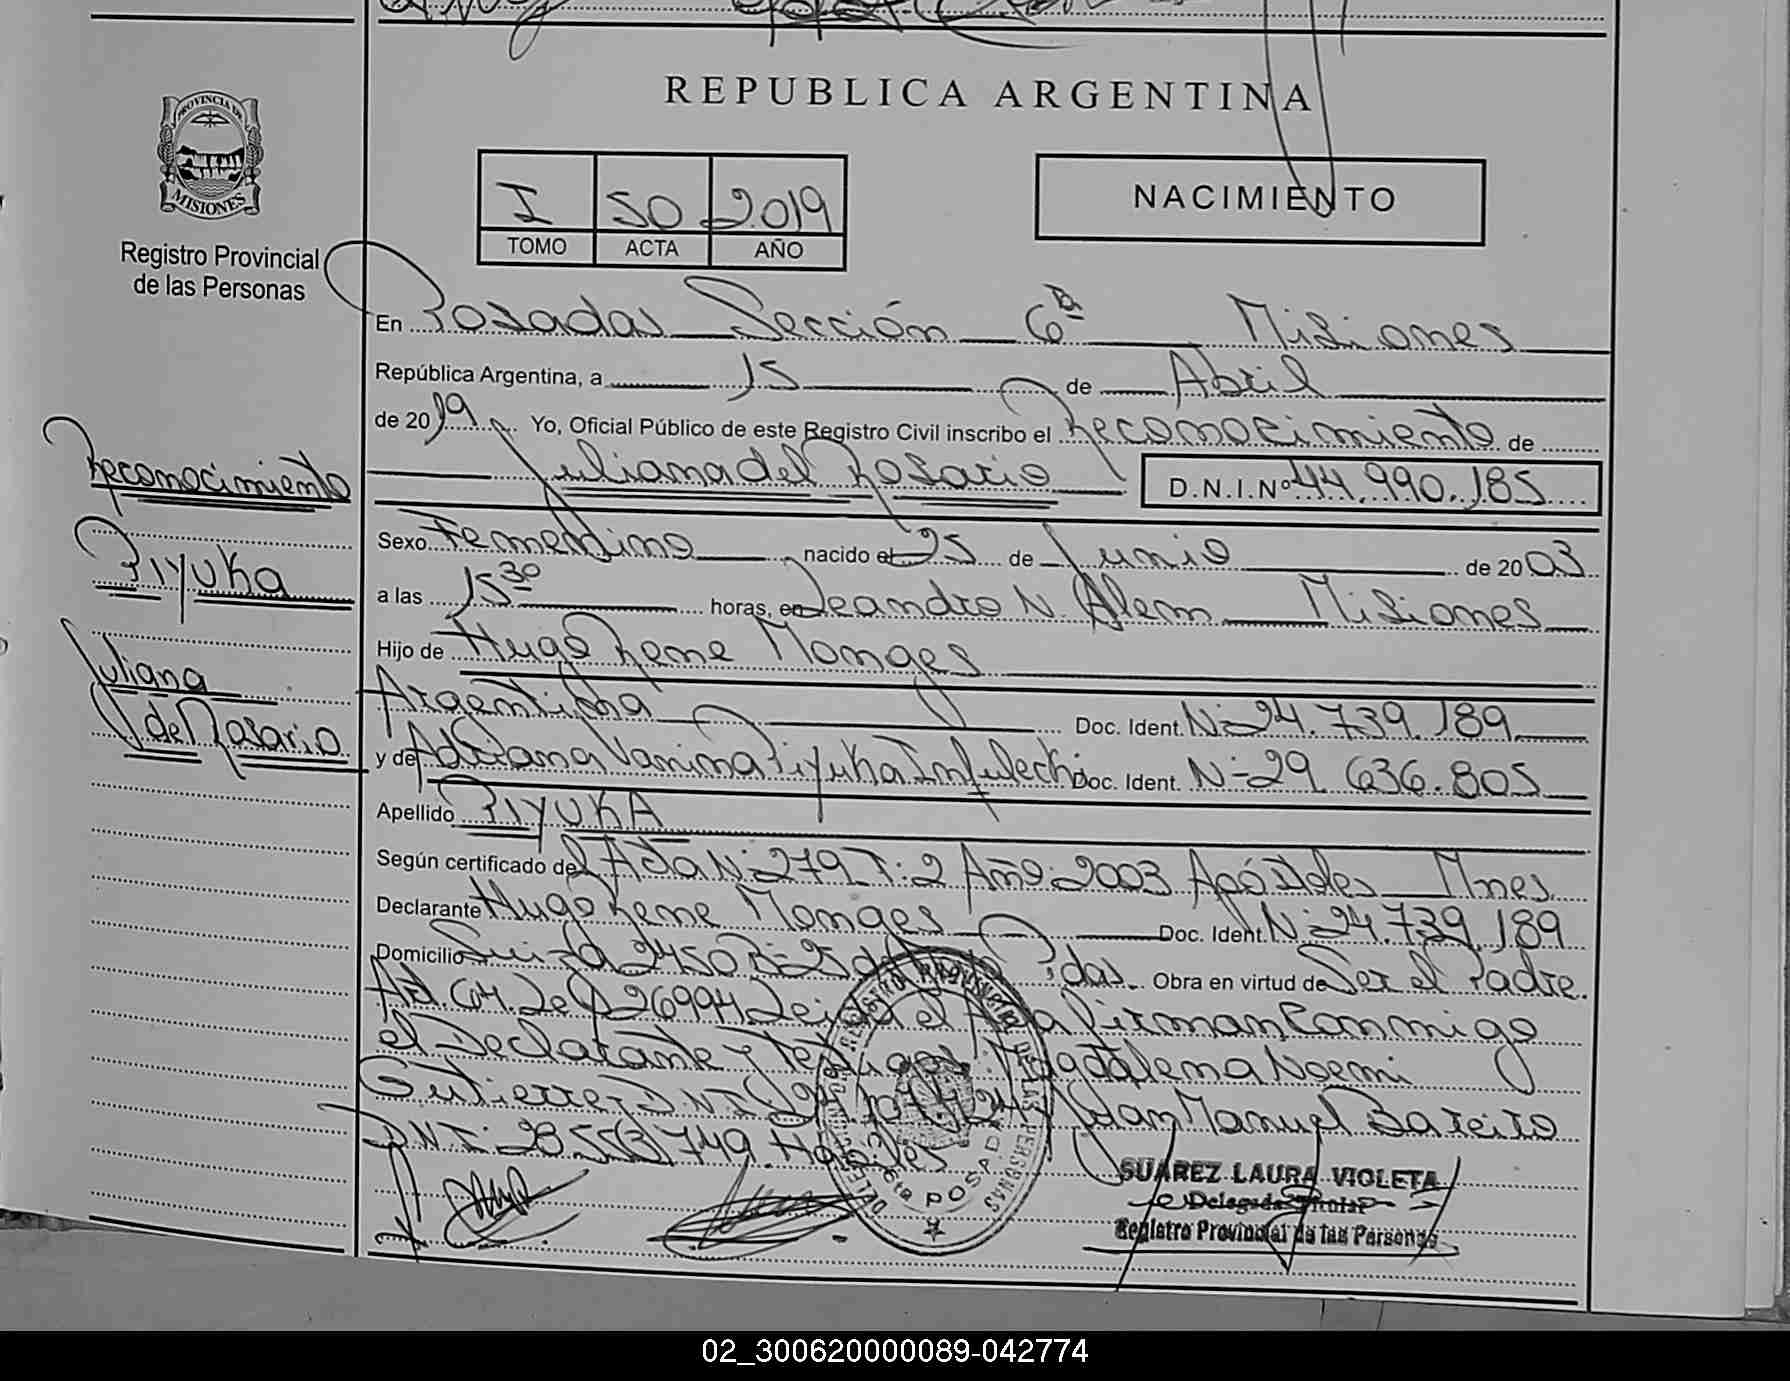 REPUBLICA ARGENTINA
PROVINCIA DE
MISIONES
Registro Provincial
de las Personas
I 50 2019
TOMO ACTA AÑO
NACIMIENTO
En Posadas Sección 6ª Misiones
República Argentina, a 15 de Abril
de 2019 Yo, Oficial Público de este Registro Civil inscribo el Reconocimiento de
Juliana del Rosario D.N.I.Nº 44.990.185
Reconocimiento
Piyuka
Juliana
del Rosario
Sexo Femenino nacido el 25 de Junio de 2003
a las 15 30 horas, en Leandro N. Alem Misiones
Hijo de Hugo Rene Monges
Argentina Doc. Ident. Nº 24.739.189
y de Adriana Vanina Piyuka Doc. Ident. Nº 29.636.805
Apellido PIYUKA
Según certificado del Acta Nº 279 T: 2 Año: 2003 Apóstoles Mnes
Declarante Hugo Rene Monges Doc. Ident. Nº 24.739.189
Domicilio 2450 Pdas. Obra en virtud de Ser el Padre.
Art. 64 Ley 26994 Leida el Acta Firman Conmigo
el Declarante y Testigos: Magdalena Noemi
Gutierrez D.N.I. Juan Manuel Bareiro
D.N.I: 28.553.749. Hábiles
REGISTRO PROVINCIAL DE LAS PERSONAS
POSADAS
SUAREZ LAURA VIOLETA
Delegada Titular
Registro Provincial de las Personas
02_300620000089-042774